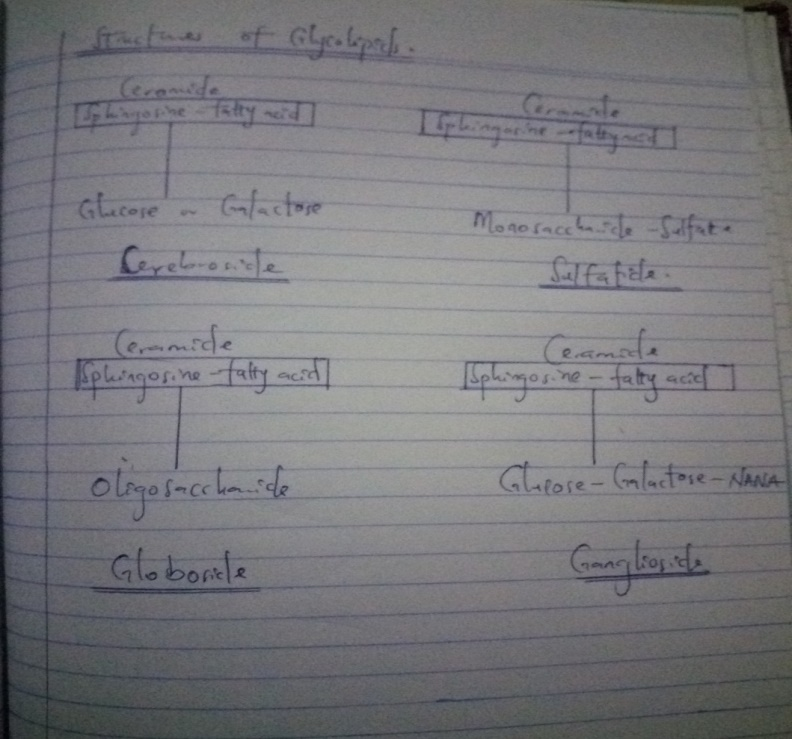 Structures of Glycolipids.
Ceramide
Sphingosine - fatty acid
Glucose or Galactose
Cerebroside
Ceramide
Sphingosine - fatty acid
Monosaccharide - Sulfate
Sulfatide.
Ceramide
Sphingosine - fatty acid
Oligosaccharide
Globoside
Ceramide
Sphingosine - fatty acid
Glucose - Galactose - NANA
Ganglioside